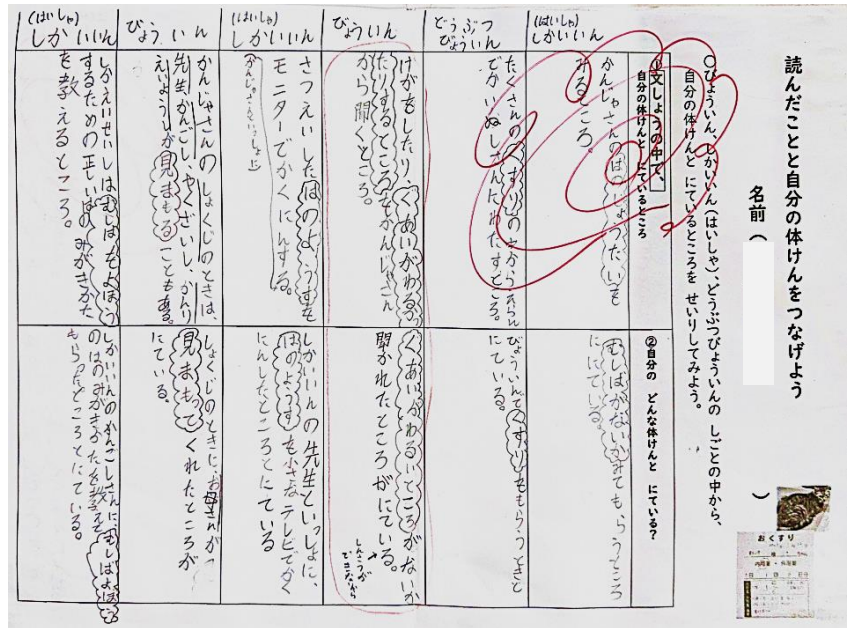 読んだことと自分の体けんをつなげよう
名前(　　　)
〇びょういん、しかいいん(はいしゃ)、どうぶつびょういんの しごとの中から、
自分の体けんと にているところを せいりしてみよう。
①文しょうの中で、
自分の体けんと にているところ
②自分の どんな体けんと にている?
(はいしゃ)
しかいいん
かんじゃさんのはのじょうたいを
みるところ。
むしばがないかみてもらうところ
ににている。
どうぶつ
びょういん
たくさんのくすりの中からえらん
でかいぬしさんにわたすところ。
びょういんでくすりをもらうときと
にている。
びょういん
けがをしたり、ぐあいがわるかっ
たりするところをかんじゃさん
から聞くところ。
ぐあいがわるいところがないか
聞かれたところがにている。
しんさつが
できないから
(はいしゃ)
しかいいん
さつえいしたはのようすを
モニターでかくにんする。
(かんじゃさんといっしょに)
しかいいんの先生といっしょに、
はのようすを小さなテレビでかく
にんしたところとにている
びょういん
かんじゃさんのしょくじのときは、
先生、かんごし、やくざいし、かんり
えいようしが見まもることもある。
しょくじのときに、お母さんが
見まもってくれたところが
にている。
(はいしゃ)
しかいいん
しかえいせいしはむしばをよぼう
するための正しいはのみがきかた
を教えるところ。
しかいいんのかんごしさんに、むしばよぼう
のはのみがきかたを教えて
もらったところとにている。
おくすり